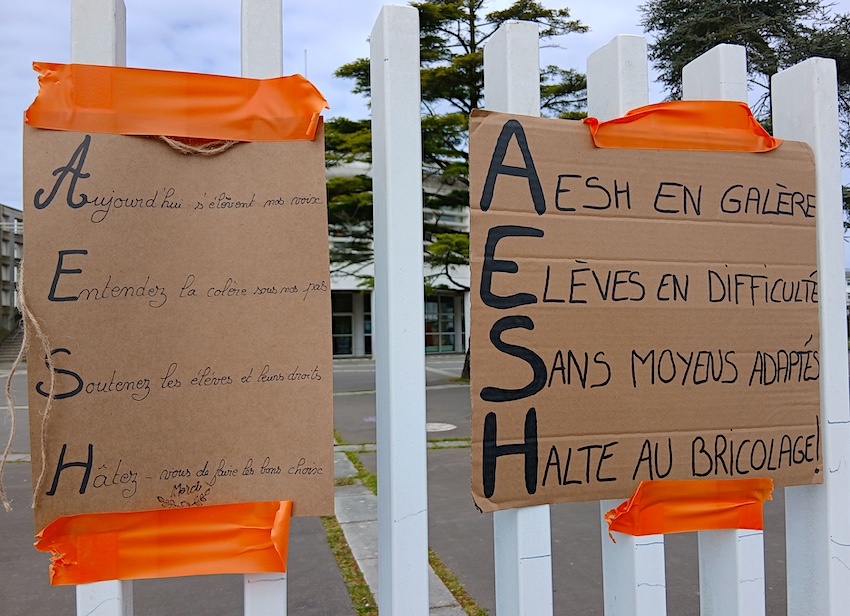 Aujourd'hui s'élèvent nos voix
Entendez la colère sous nos pas
Soutenez les élèves et leurs droits
Hâtez-vous de faire les bons choix
Merci
AESH EN GALÈRE
ELÈVES EN DIFFICULTÉ
SANS MOYENS ADAPTÉS
HALTE AU BRICOLAGE!